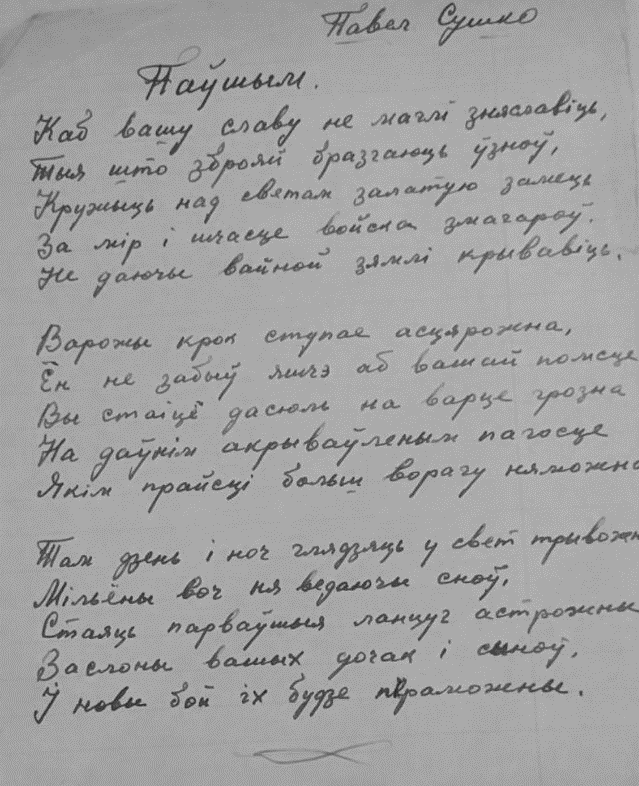 Павел Сушко
Паўшым.
Каб вашу славу не маглі зняславіць,
Тыя што зброяй бразгаюць ўзноў,
Кружыць над светам залатую замець
За мір і шчасце войска змагароў.
Не даючы вайной зямлі крывавіць.
Варожы крок ступае асцярожна,
Ён не забыў яшчэ аб вашай помсце
Вы стаіцё дасюль на варце грозна
На даўнім акрываўленым пагосце
Якім прайсці больш ворагу няможна
Там дзень і ноч глядзяць у свет трывожн
Мільёны воч ня ведаючы сноў,
Стаяць парваўшыя ланцуг астрожны
Заслоны вашых дочак і сыноў,
Ў новы бой іх будзе пераможны.